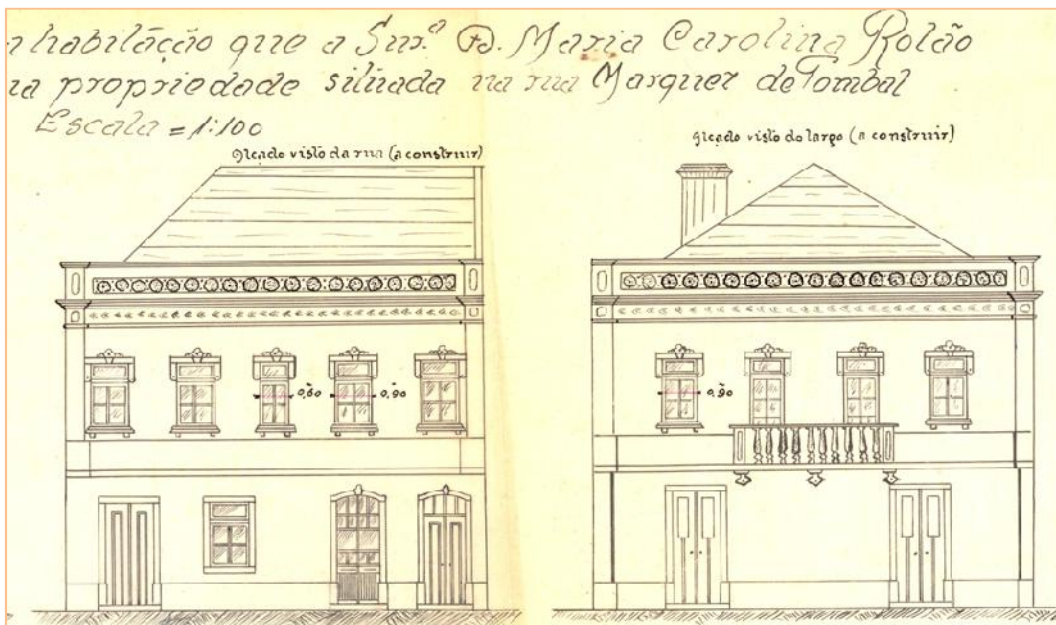 habilação que a Snr.ª D. Maria Carolina Rolão
na propriedade situada na rua Marquez de Pombal
Escala = 1:100
Alçado visto da rua (a construir)
Alçado visto do largo (a construir)
0,60
0,90
0,90